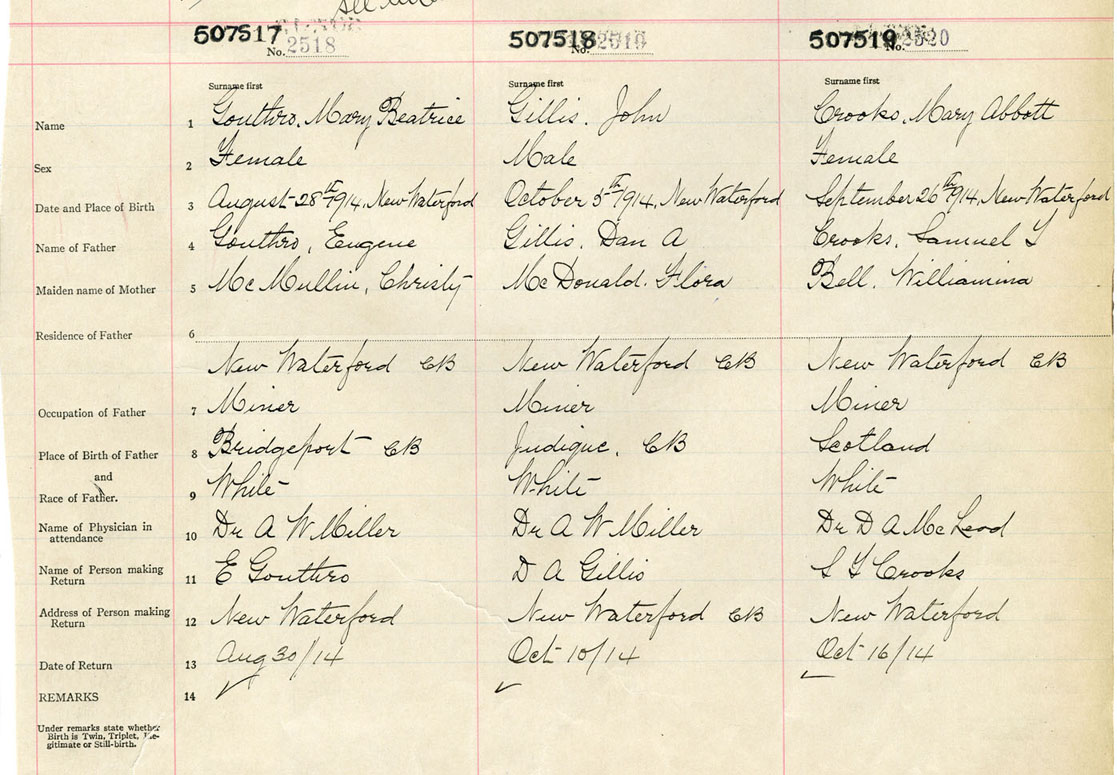 507517 507518 507519
No. 2518 No. 2519 No. 2520
Surname first Surname first Surname first
Name 1 Gouthro, Mary Beatrice Gillis, John Crooks, Mary Abbott
Sex 2 Female Male Female
Date and Place of Birth 3 August 28th 1914, New Waterford October 5th 1914, New Waterford September 26th 1914, New Waterford
Name of Father 4 Gouthro, Eugene Gillis, Dan A Crooks, Samuel
Maiden name of Mother 5 McMullin, Christy McDonald, Flora Bell, Williamina
Residence of Father 6
New Waterford CB New Waterford CB New Waterford CB
Occupation of Father 7 Miner Miner Miner
Place of Birth of Father 8 Bridgeport CB Judique, CB Scotland
and
Race of Father. 9 White White White
Name of Physician in
attendance 10 Dr A W Miller Dr A W Miller Dr D A McLeod
Name of Person making
Return 11 E Gouthro D A Gillis Crooks
Address of Person making
Return 12 New Waterford New Waterford CB New Waterford
Date of Return 13 Aug 30/14 Oct 10/14 Oct 16/14
REMARKS 14
Under remarks state whether
Birth is Twin, Triplet, Ille-
gitimate or Still-birth.